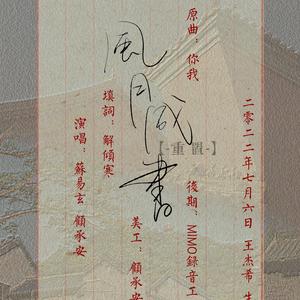 二零二二年七月六日 王杰希 生
原曲：你我
後期：MIMO錄音工
風月成書
【-重置-】
美工：顧承安
填詞：解傾寒
演唱：蘇易玄 顧承安